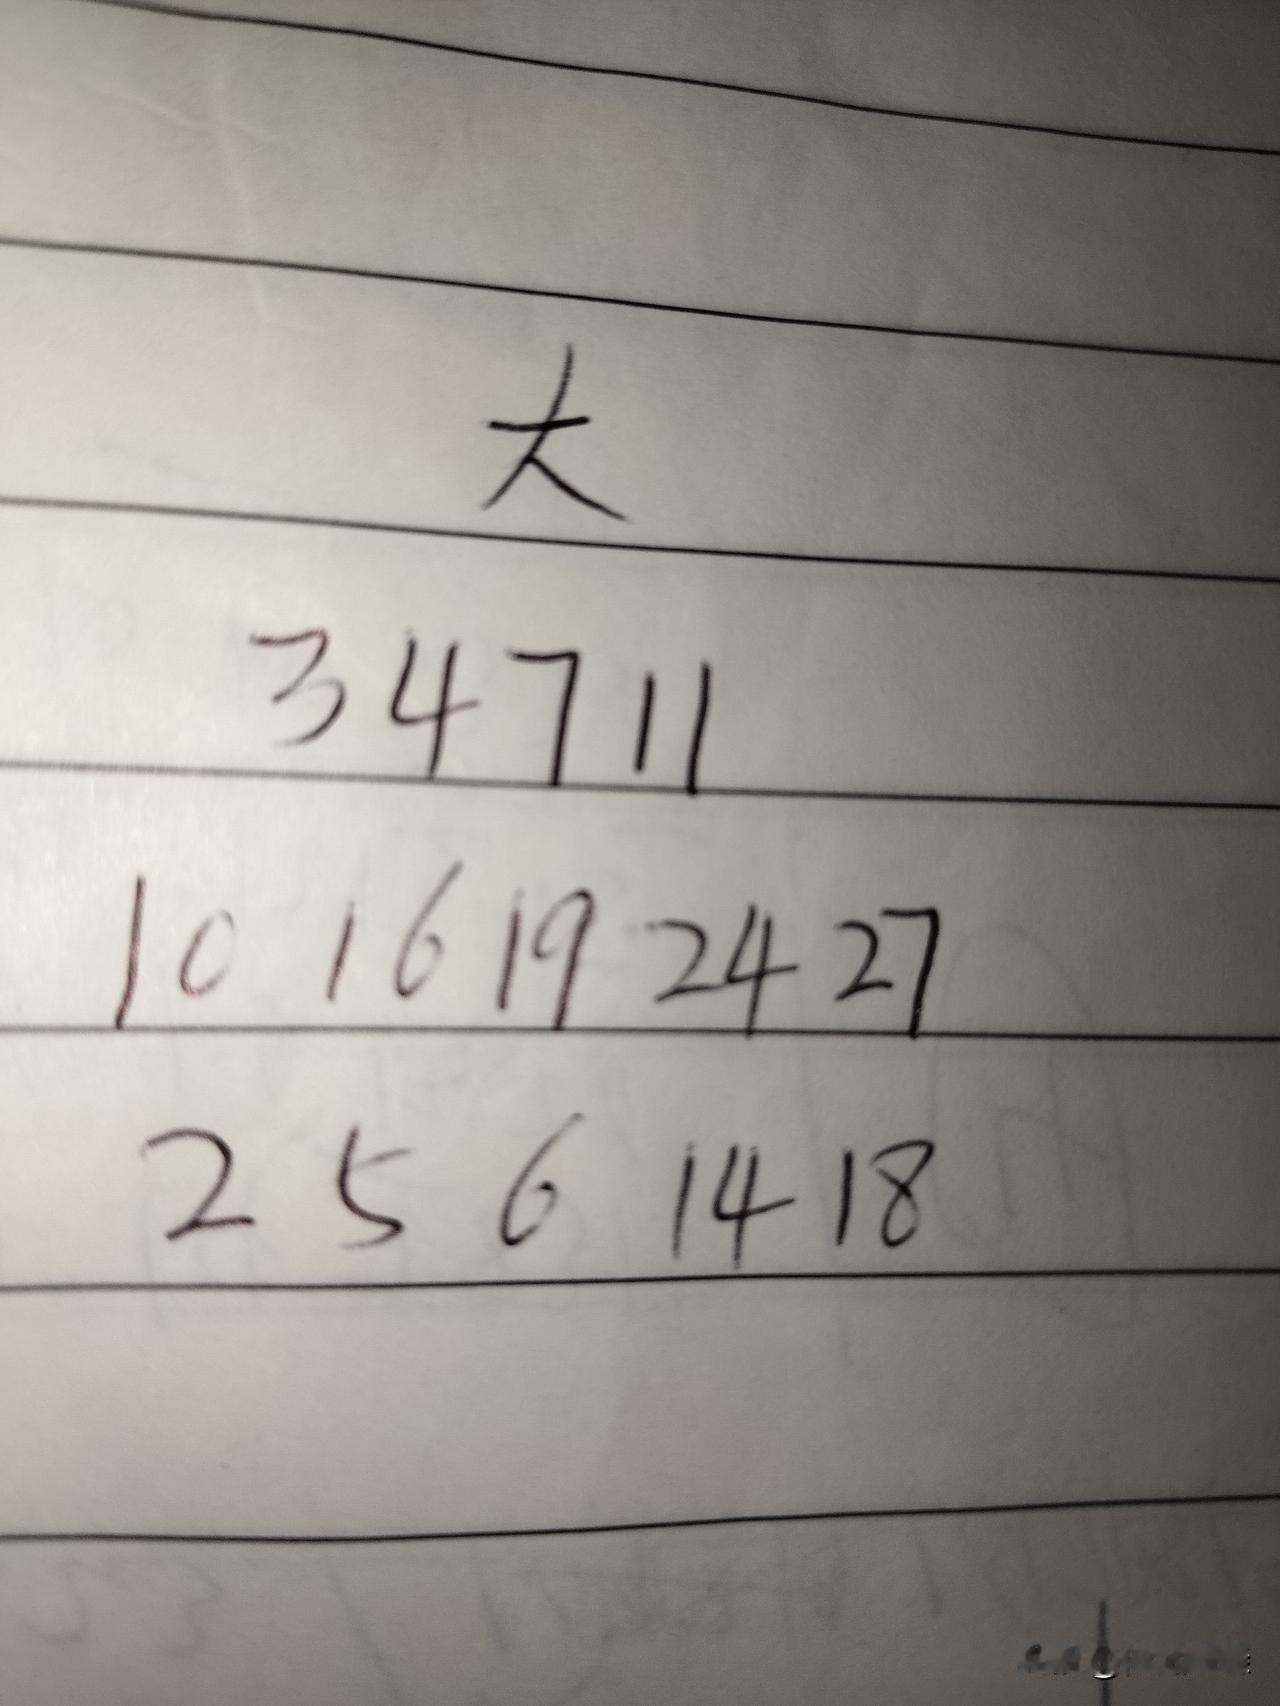 大
3 4 7 11
10 16 19 24 27
2 5 6 14 18